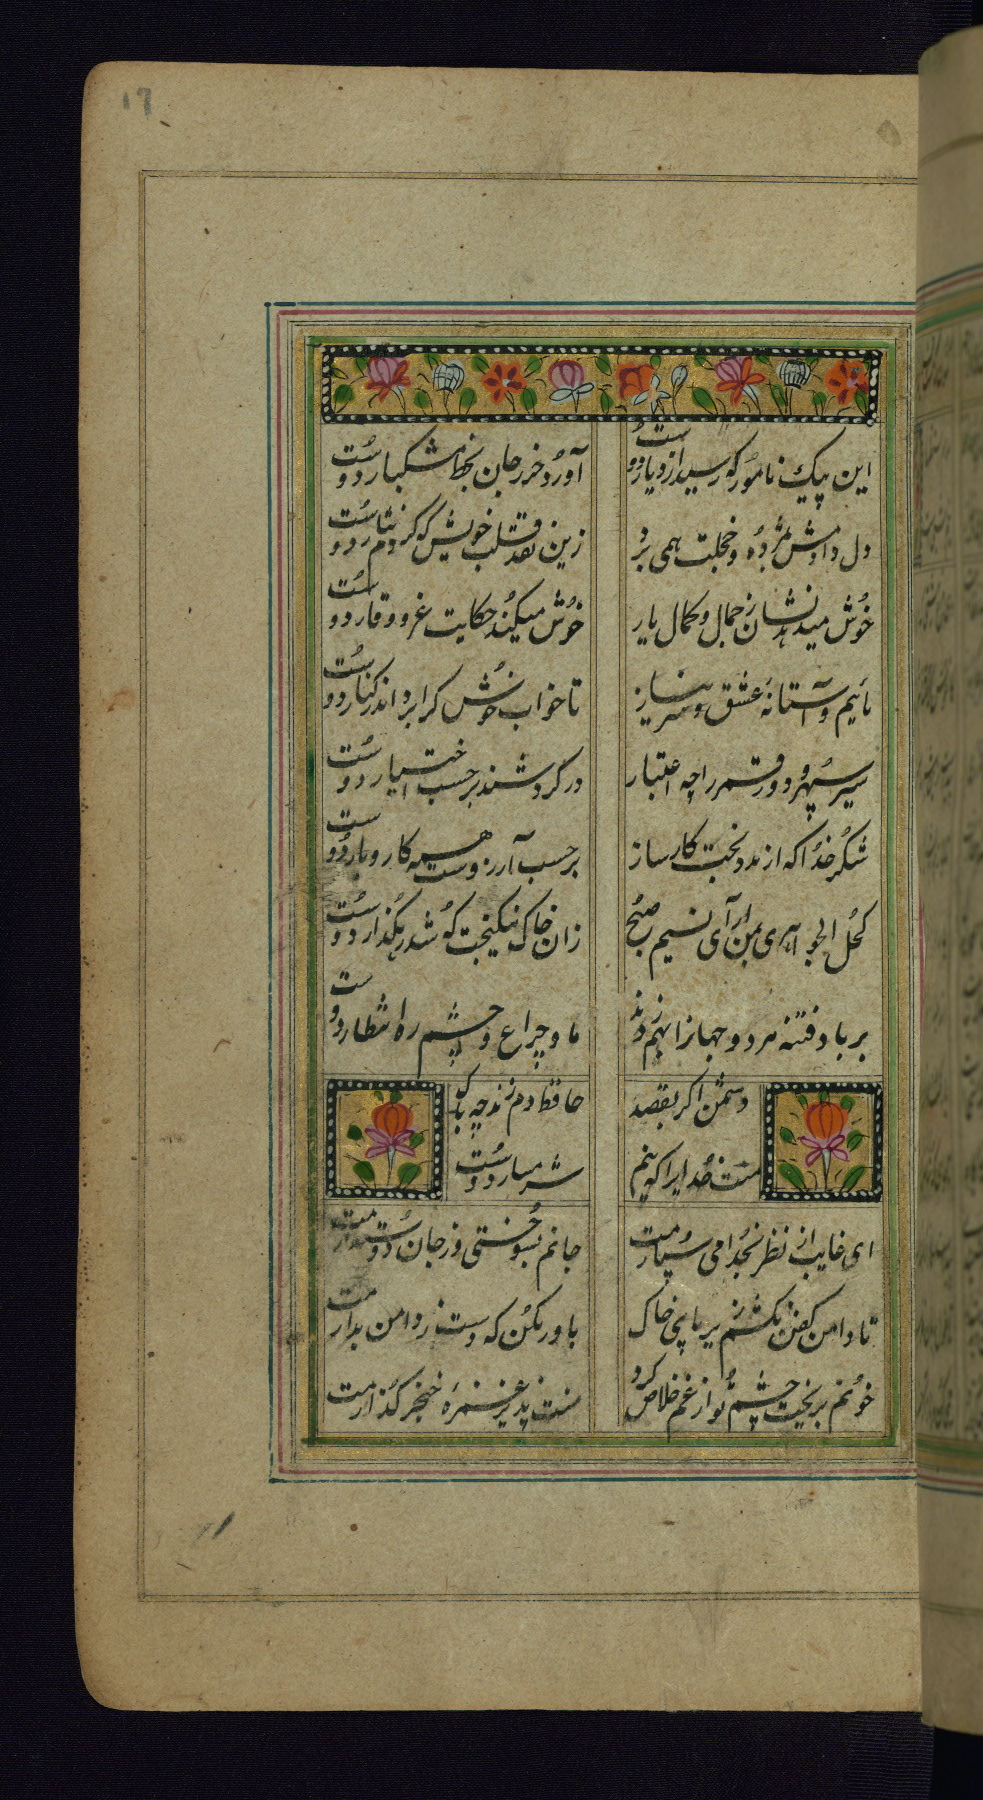 ۱۶
این پیک نامور که رسید از دیار دوست
آورد حرز جان بخط مشکبار دوست
دل دادمش بمژده و خجلت همی برد
زین نقد قلب خویش که کردم نثار دوست
خوش میدهد نشان ز جمال و کمال یار
خوش میکند حکایت عز و وقار دوست
مائیم و آستانه عشق و سر نیاز
تا خواب خوش کرا برد اندر کنار دوست
سیر سپهر و دور قمر را چه اعتبار
در کردشند بر حسب اختیار دوست
شکر خدا که از مدد بخت کارساز
بر حسب آرزوست همه کار و بار دوست
کحل الجواهری بمن آر ای نسیم صبح
زان خاک نیکبخت که شد رهگذار دوست
بر باد فتنه هر دو جهانرا بهم زند
ما و چراغ چشم و ره انتظار دوست
دشمن اکر بقصد
حافظ دم زند چه باک
منت خدایرا که نیم
شرمسار دوست
ای غایب از نظر بخدا می سپارمت
جانم بسوختی و ز جان دوست دارمت
تا دامن کفن نکشم زیر پای خاک
باور مکن که دست ز دامن بدارمت
خونم بریخت چشم تو از غم خلاص کرد
منت پذیر غمزه خنجر گذارمت